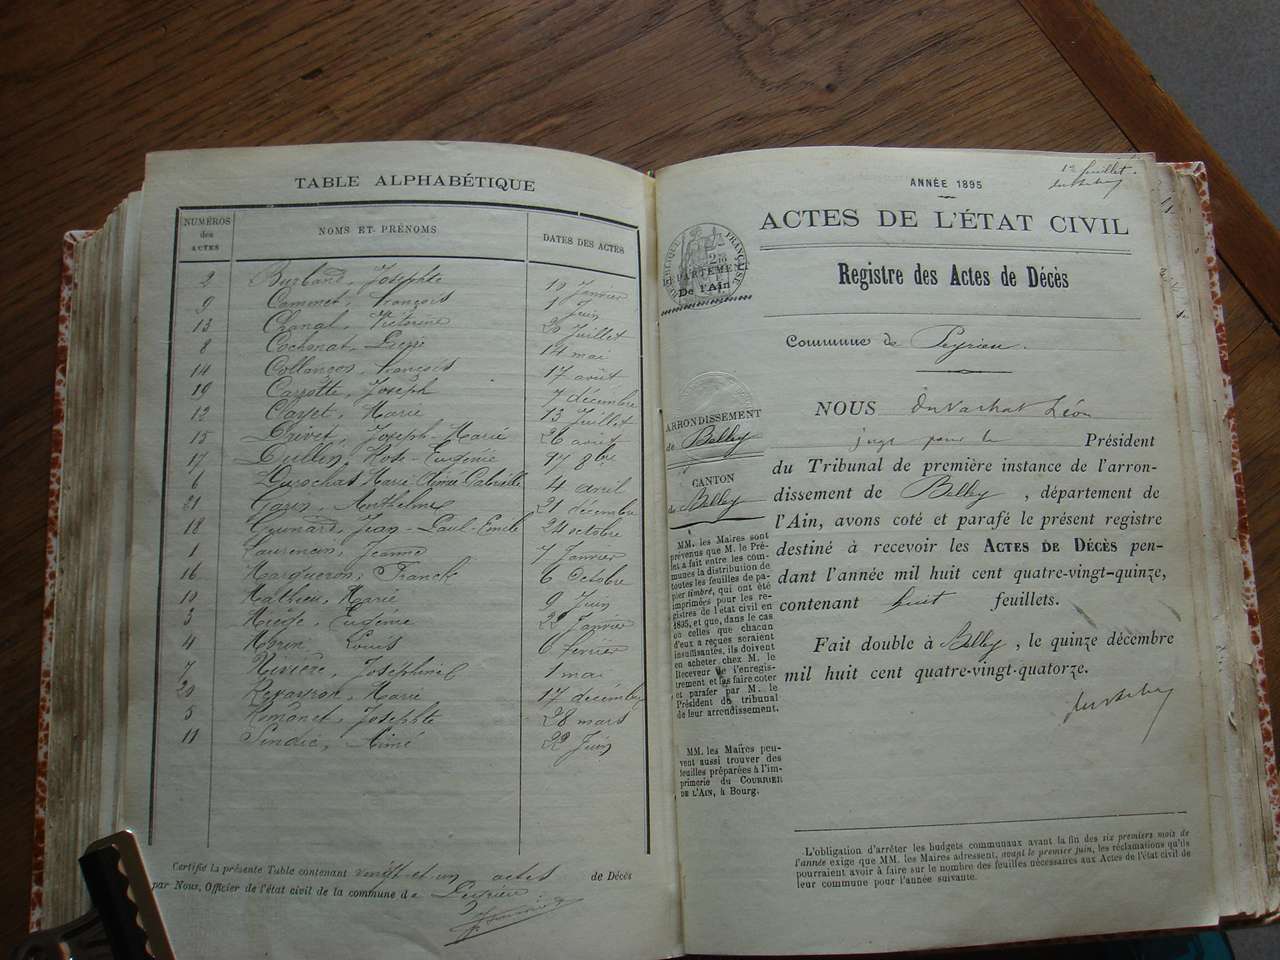 TABLE ALPHABÉTIQUE
NUMÉROS des ACTES
NOMS ET PRÉNOMS
DATES DES ACTES
2 Burland, Josephte 12 Janvier
9 François 1 Juin
13 Chanal, Victorine 20 Juillet
8 14 mai
14 François 17 août
19 Joseph 7 décembre
12 Marie 13 Juillet
15 Joseph-Marie 26 août
17 Dullin, Rose-Eugénie 17 8bre
6 Durochat Marie-Aimée-Gabrielle 4 avril
21 Garin, Anthelme 21 décembre
18 Guinard, Jean-Paul-Emile 24 octobre
1 Laurencon, Jeanne 7 Janvier
16 Margueron, Franck 6 Octobre
10 Mathieu, Marie 9 Juin
3 Miège, Eugénie 22 Janvier
4 Morin, Louis 6 février
7 Rivière, 1 mai
20 Marie 17 décembre
5 Josephte 28 mars
11 Sindic, Aimé 22 Juin
Certifié la présente Table contenant vingt et un actes de Décès
par Nous, Officier de l'état civil de la commune de Peyrieu
1er feuillet.
ANNÉE 1895
ACTES DE L'ÉTAT CIVIL
RÉPUBLIQUE FRANÇAISE
DÉPARTEMENT
De l'Ain
Registre des Actes de Décès
Commune de Peyrieu.
ARRONDISSEMENT
de Belley
CANTON
de Belley
MM. les Maires sont
prévenus que M. le Pré-
fet a fait entre les com-
munes la distribution de
toutes les feuilles de pa-
pier timbré, qui ont été
imprimées pour les re-
gistres de l'état civil en
1895, et que, dans le cas
où celles que chacun
d'eux a reçues seraient
insuffisantes, ils doivent
en acheter chez M. le
Receveur de l'enregis-
trement et les faire coter
et parafer par M. le
Président du tribunal
de leur arrondissement.
MM. les Maires peu-
vent aussi trouver des
feuilles préparées à l'im-
primerie du COURRIER
DE L'AIN, à Bourg.
NOUS Duvachat Léon
juge pour le Président
du Tribunal de première instance de l'arron-
dissement de Belley, département de
l'Ain, avons coté et parafé le présent registre
destiné à recevoir les ACTES DE DÉCÈS pen-
dant l'année mil huit cent quatre-vingt-quinze,
contenant huit feuillets.
Fait double à Belley, le quinze décembre
mil huit cent quatre-vingt-quatorze.
L'obligation d'arrêter les budgets communaux avant la fin des six premiers mois de
l'année exige que MM. les Maires adressent, avant le premier juin, les réclamations qu'ils
pourraient avoir à faire sur le nombre des feuilles nécessaires aux Actes de l'état civil de
leur commune pour l'année suivante.